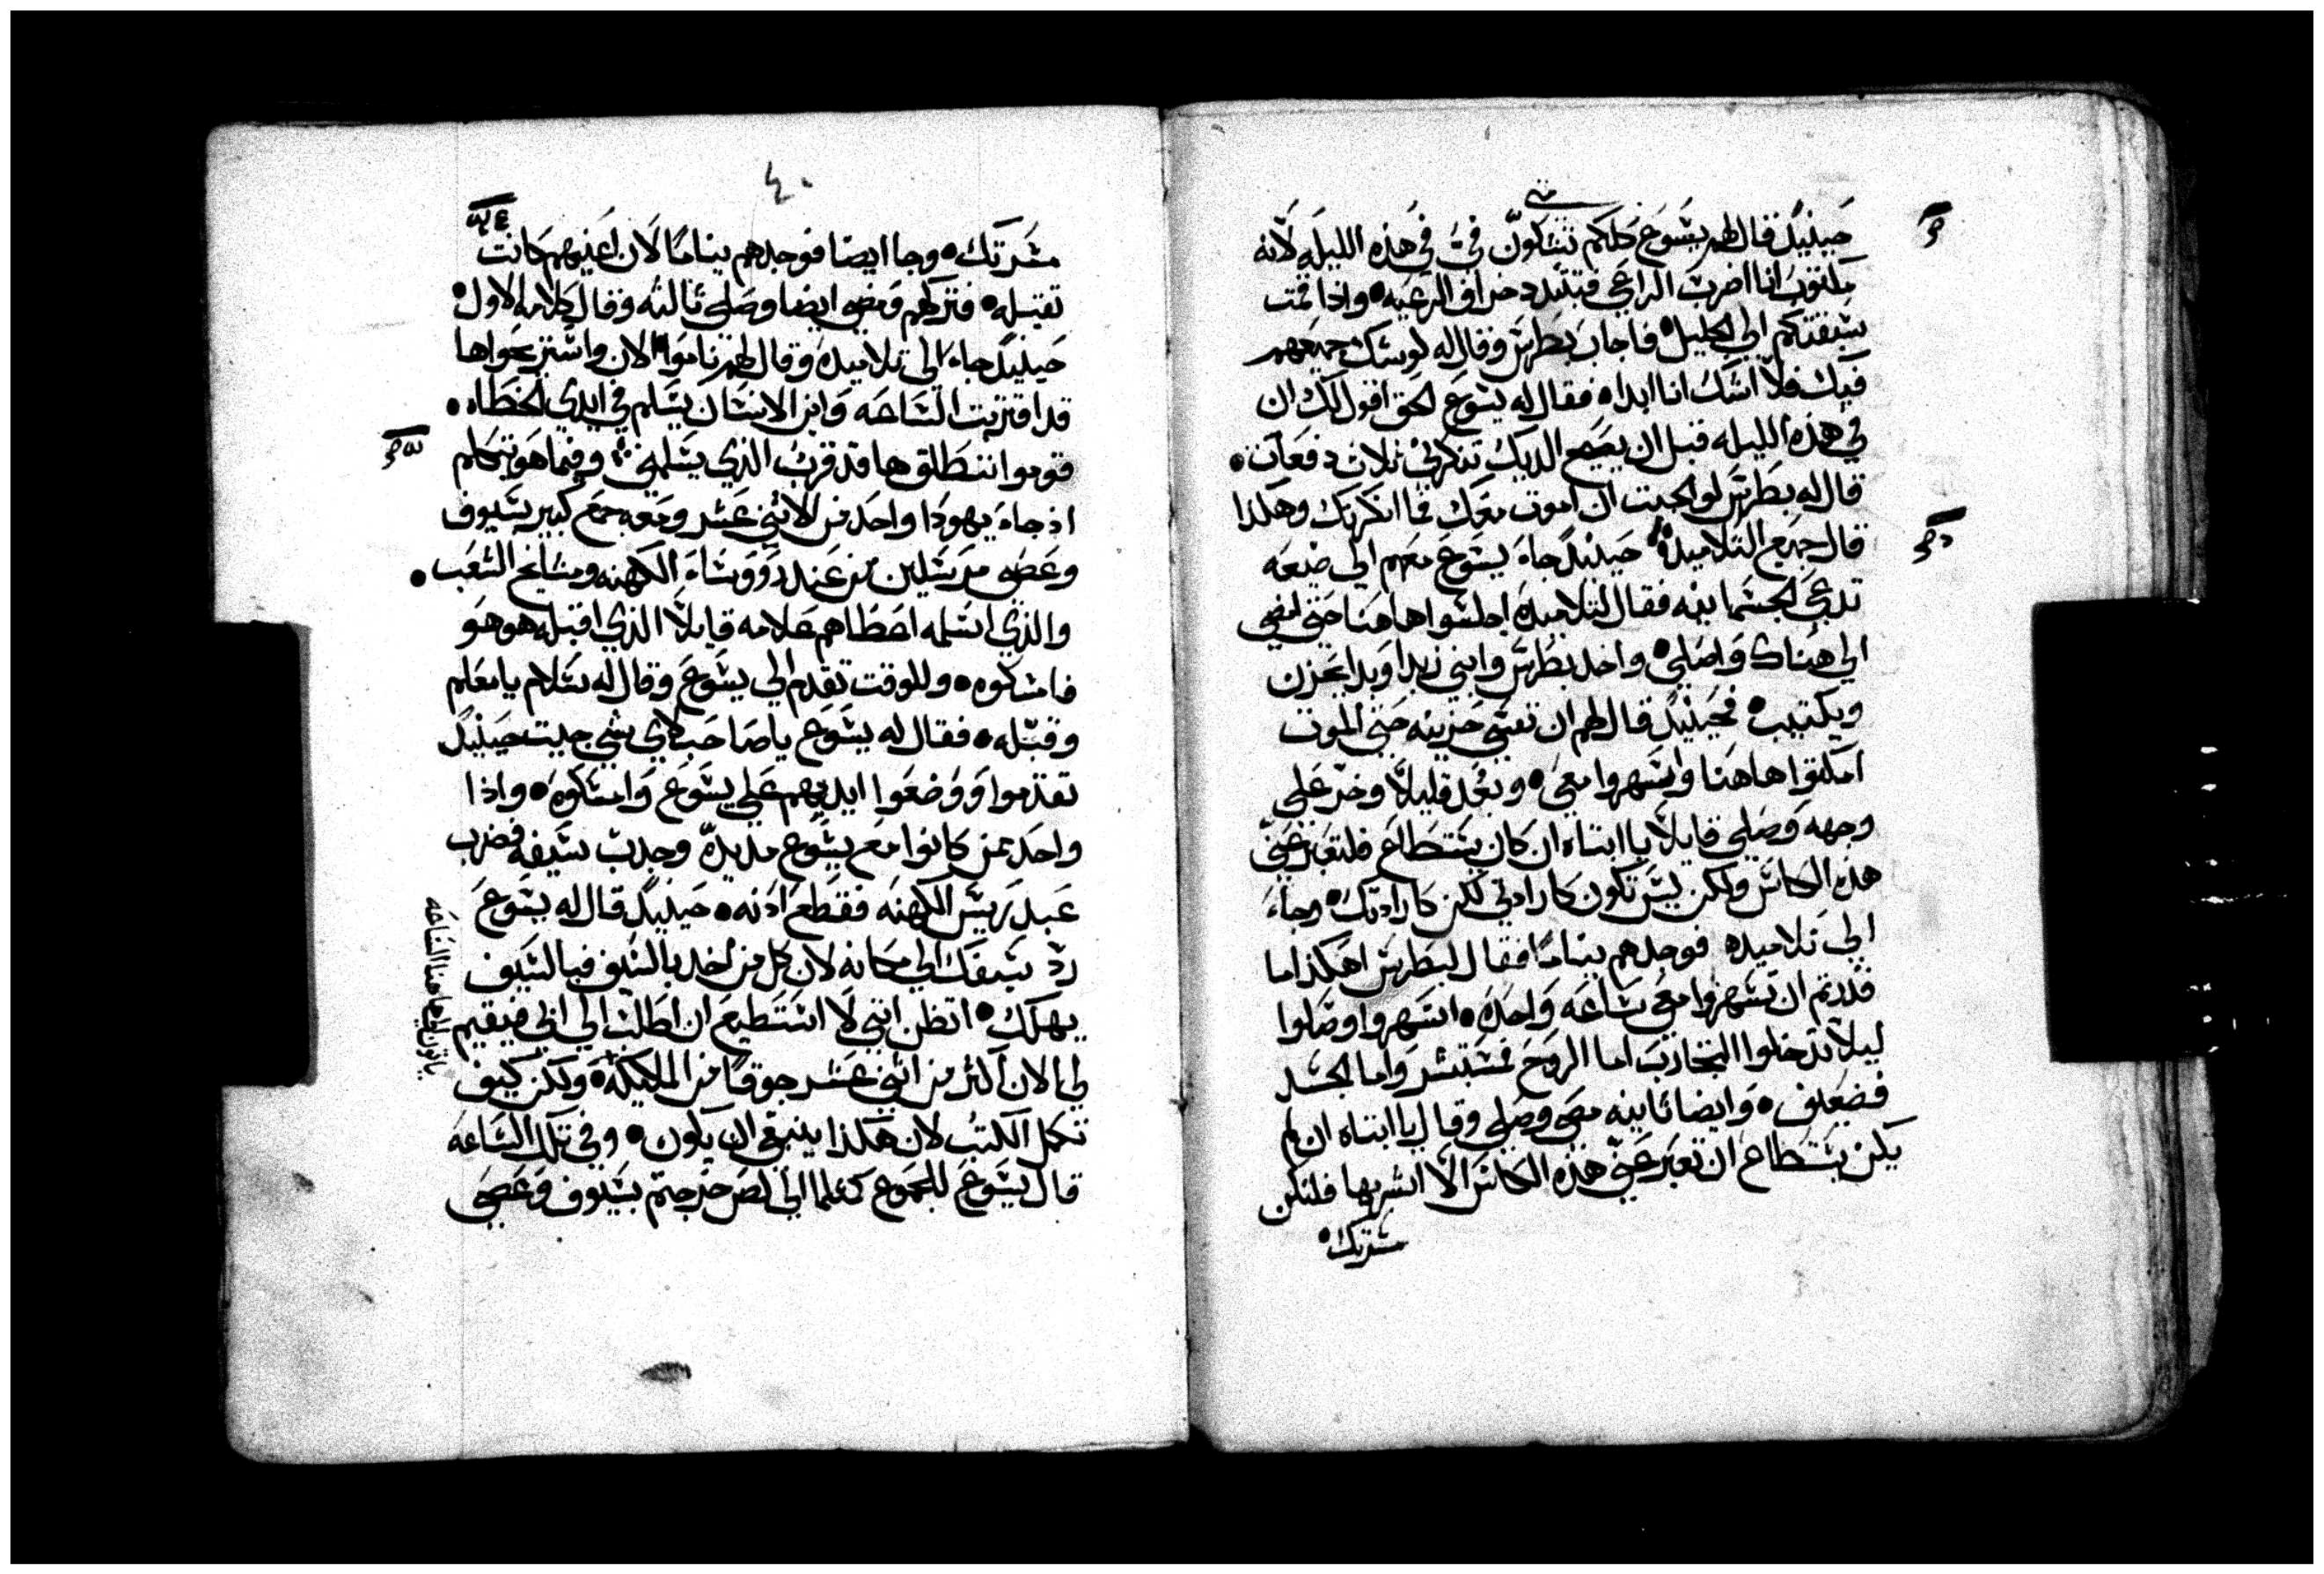 متى
حينيدٍ قال لهم يسوع كلكم تشكون فيَّ في هذه الليله لانه
مكتوب انا اضرب الراعي فتتبدد خراف الرعيه • واذا قمت
سبقتكم الي الجليل • فاجاب بطرس وقال له لو شك جميعهم
فيك فلا اشك انا ابدا • فقال له يسوع الحق اقول لك ان
في هذه الليله قبل ان يصيح الديك تنكرني ثلاث دفعات •
قال له بطرس لو الجيت ان اموت معك فما انكرتك وهكذا
قال جميع التلاميد • حينيدٍ جاء يسوع معهم الي ضيعه
تدعي الجسمانيه فقال لتلاميده اجلسوا هاهنا حتي امضي
الي هناك واصلي • واخد بطرس وابني زبدا وبدا يحزن
ويكتيب • فحينيدٍ قال لهم ان نفسي حزينه حتي الموت
امكتوا هاهنا واسهروا معي • وبعد قليلاً وخر علي
وجهه وصلي قايلاً يا ابتاه ان كان يستطاع فلتعبر عني
هذه الكاس ولكن ليس تكون كارادتي لكن كارادتك • وجاء
الي تلاميده فوجدهم نيامًا فقال لبطرس اهكذا ما
قدرتم ان تسهروا معي ساعه واحده • اسهروا وصلوا
ليلا تدخلوا التجارب اما الروح فمستبشر واما الجسد
فضعيف • وايضا ثانيه مضي وصلي وقال يا ابتاه ان لم
يكن يستطاع ان تعبر عني هذه الكاس الا اشربها فلتكن
مسرتك •
٤٠
مسرتك • وجا ايضا فوجدهم نيامًا لان اعينهم كانت
تقيله • فتركهم ومضي ايضا وصلي ثالثه وقال كلامه الاول •
حينيدٍ جاء الي تلاميده وقال لهم ناموا الان واستريحوا ها
قد اقتربت الساعه وابن الانسان يسلم في ايدي الخطاه •
قوموا ننطلق ها قد قرب الذي يسلمني • وفيما هو يتكلم
اذ جاء يهودا واحد من الاثني عشر ومعه جمع كبير بسيوف
وعصي مرسلين من عند رووساء الكهنه ومشايخ الشعب •
والذي اسلمه اعطاهم علامه قايلاً الذي اقبله هو هو
فامسكوه • وللوقت تقدم الي يسوع وقال له سلام يا معلم
وقبله • فقال له يسوع يا صاحب لاي شي جيت حينيدٍ
تقدموا ووضعوا ايديهم علي يسوع وامسكوه • واذا
واحد ممن كانوا مع يسوع مد يده وجدب سيفه فضرب
عبد ريس الكهنه فقطع ادنه • حينيدٍ قال له يسوع
رد سيفك الي مكانه لان كل من اخد بالسيف فبالسيف
يهلك • اتظن انني لا استطيع ان اطلب الي ابي فيقيم
لي الان اكثر من اثني عشر جوقًا من الملايكه • ولكن كيف
تكمل الكتب لان هكذا ينبغي ان يكون • وفي تلك الساعه
قال يسوع للجموع كمثلما الي لص خرجتم بسيوف وعصي